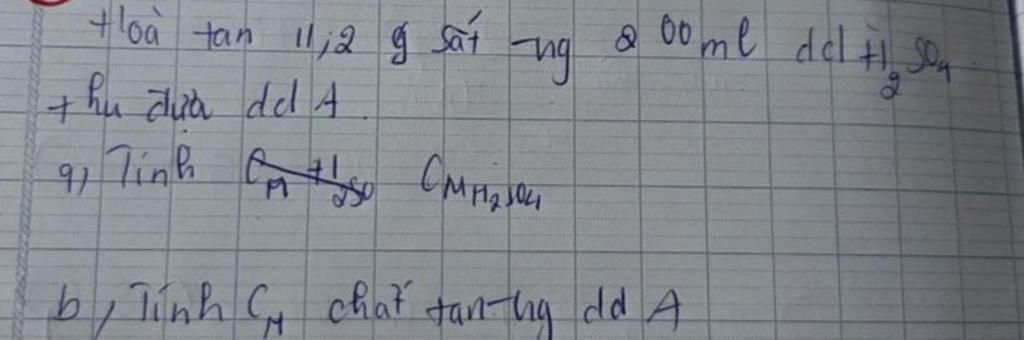 Hoà tan 11,2 g sắt trong 200ml dd H2SO4
thu được dd A.
a, Tính CM H2SO CM H2SO4
b, Tính CM chất tan trong dd A